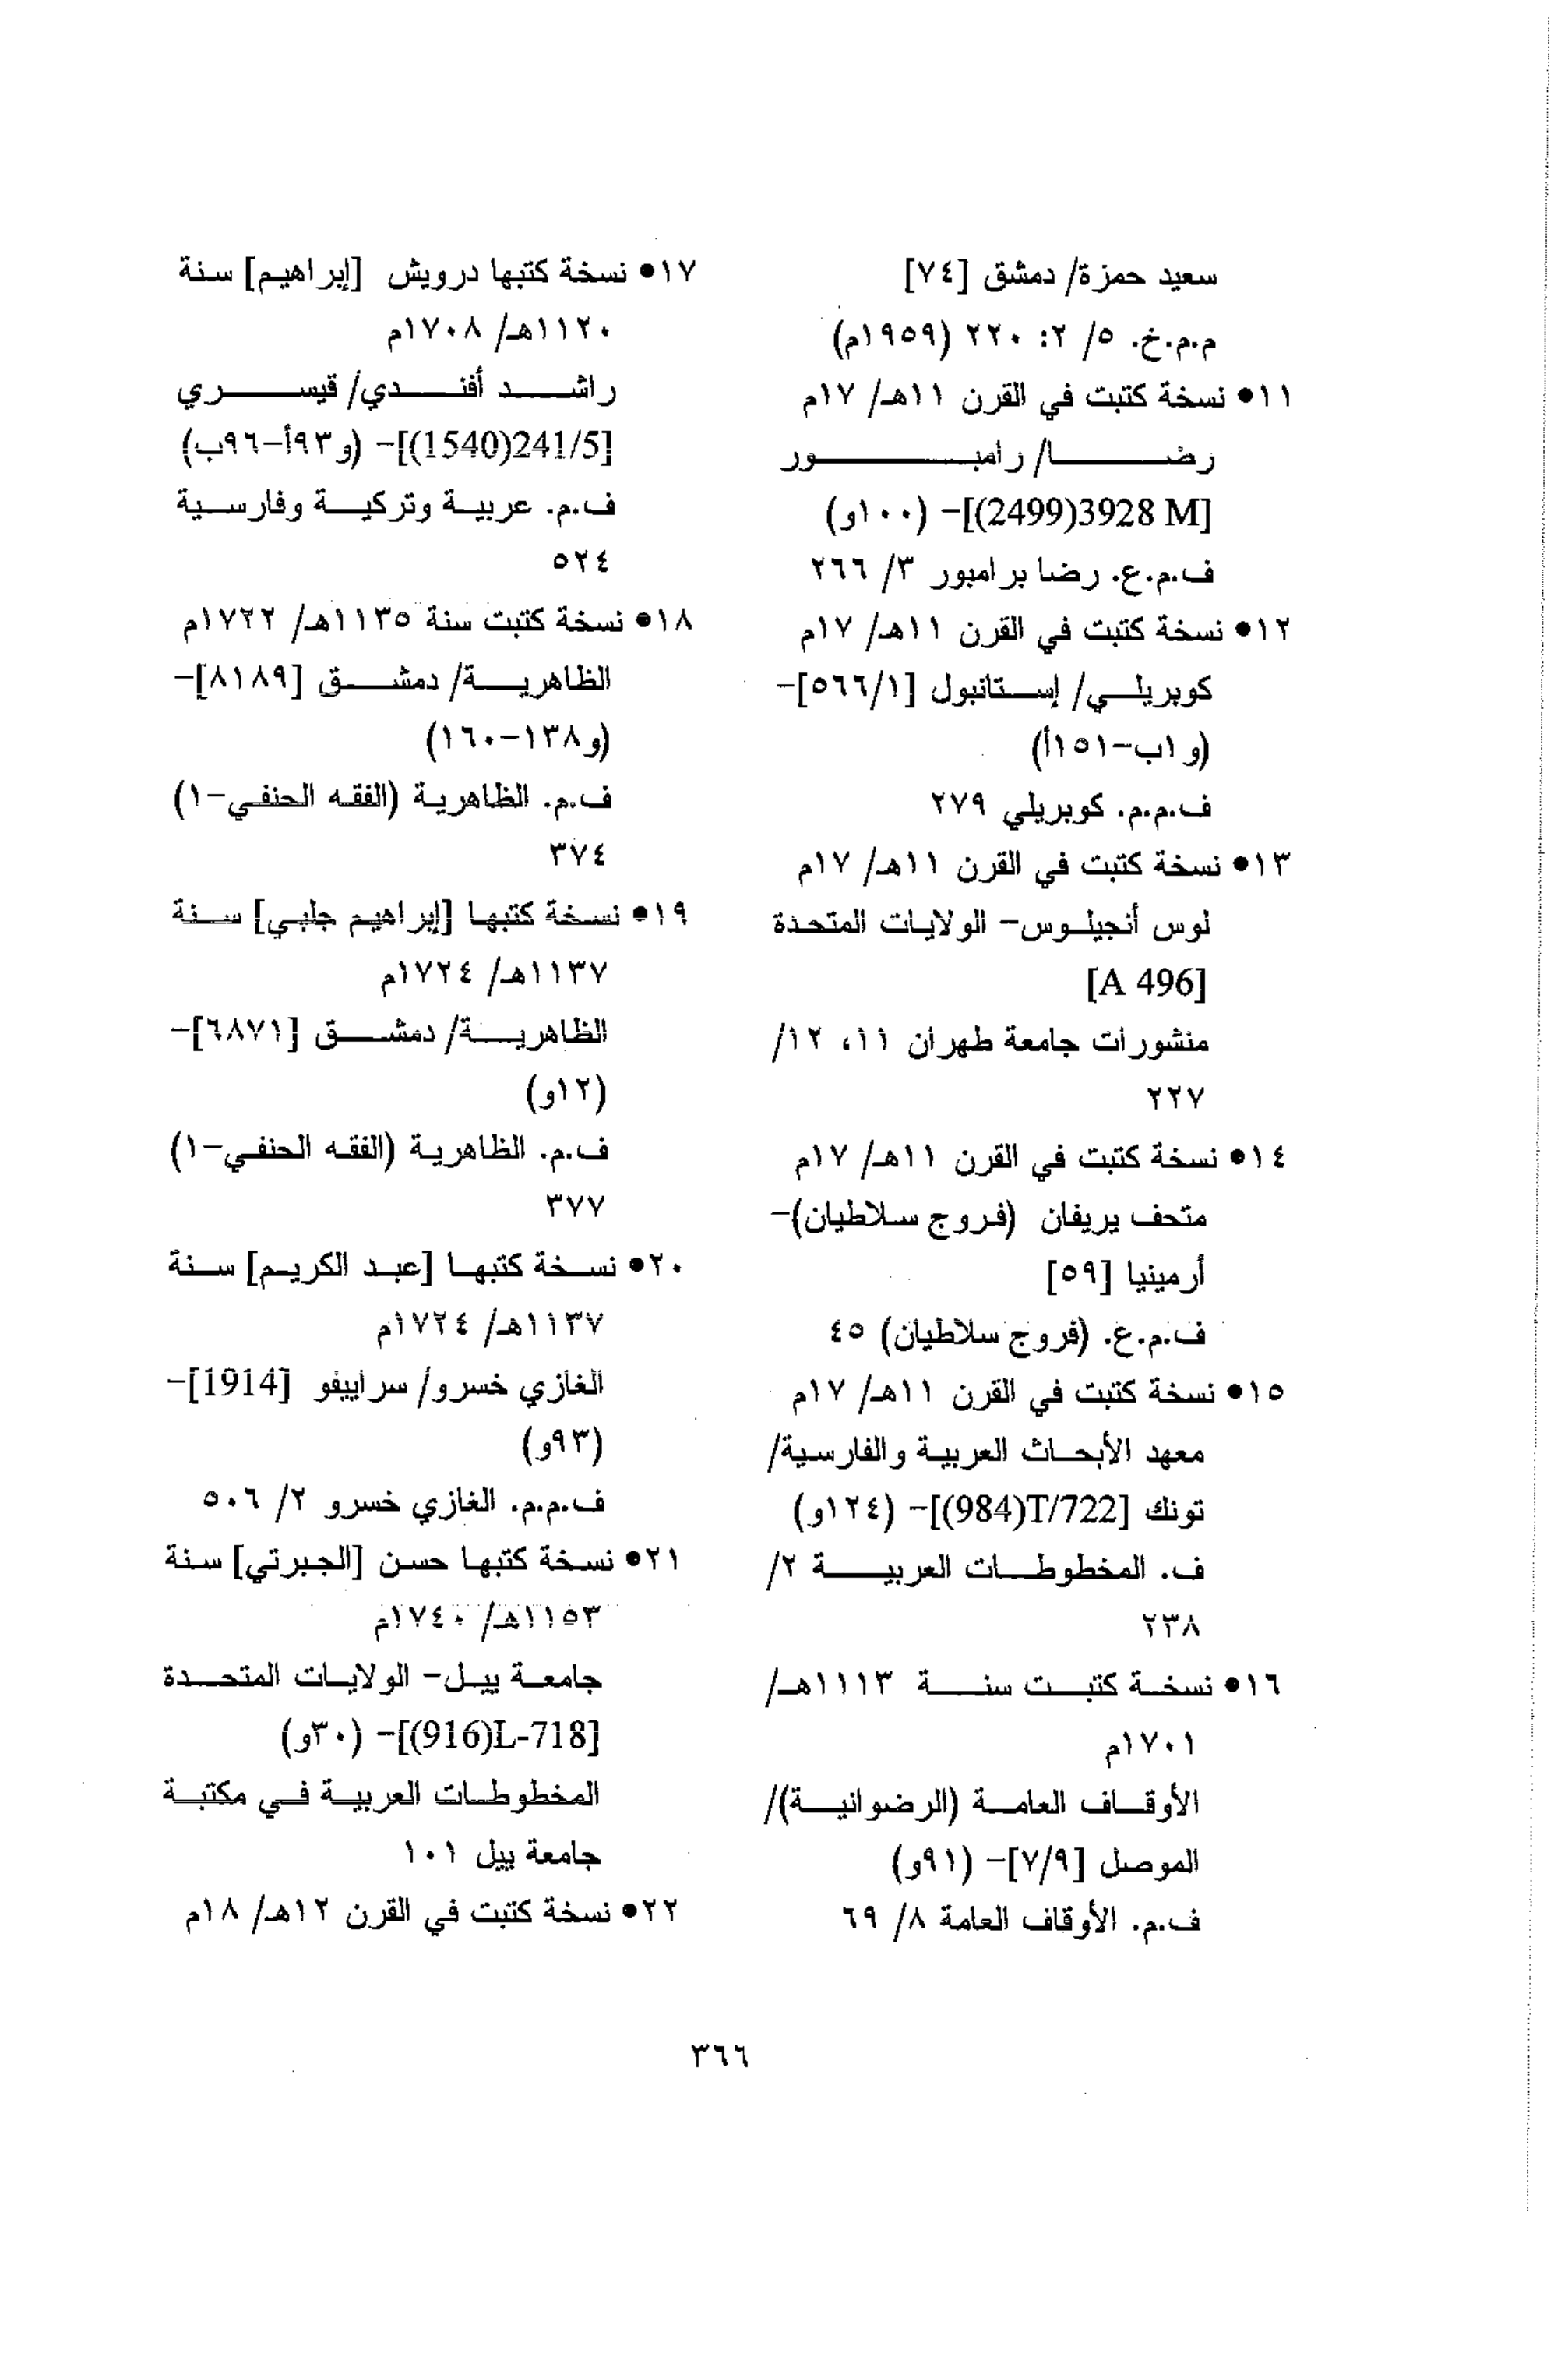 سعيد حمزة/ دمشق [٧٤]
م.م.خ. ٥/ ٢: ٢٢٠ (١٩٥٩م)
١١• نسخة كتبت في القرن ١١هـ/ ١٧م
رضا/ رامبور
[3928 M(2499)]- (١٠٠و)
ف.م.ع. رضا برامبور ٣/ ٢٦٦
١٢• نسخة كتبت في القرن ١١هـ/ ١٧م
كوبريلي/ إستانبول [٥٦٦/١]-
(و ١ب-١٥١أ)
ف.م.م. كوبريلي ٢٧٩
١٣• نسخة كتبت في القرن ١١هـ/ ١٧م
لوس أنجيلوس- الولايات المتحدة
[A 496]
منشورات جامعة طهران ١١، ١٢/
٢٢٧
١٤• نسخة كتبت في القرن ١١هـ/ ١٧م
متحف يريفان (فروج سلاطيان)-
أرمينيا [٥٩]
ف.م.ع. (فروج سلاطيان) ٤٥
١٥• نسخة كتبت في القرن ١١هـ/ ١٧م
معهد الأبحاث العربية والفارسية/
تونك [T/722(984)]- (١٢٤و)
ف. المخطوطات العربية ٢/
٢٣٨
١٦• نسخة كتبت سنة ١١١٣هـ/
١٧٠١م
الأوقاف العامة (الرضوانية)/
الموصل [٧/٩]- (٩١و)
ف.م. الأوقاف العامة ٨/ ٦٩
١٧• نسخة كتبها درويش [إبراهيم] سنة
١١٢٠هـ/ ١٧٠٨م
راشد أفندي/ قيسري
[241/5(1540)]- (و٩٣أ-٩٦ب)
ف.م. عربية وتركية وفارسية
٥٢٤
١٨• نسخة كتبت سنة ١١٣٥هـ/ ١٧٢٢م
الظاهرية/ دمشق [٨١٨٩]-
(و١٣٨-١٦٠)
ف.م. الظاهرية (الفقه الحنفي-١)
٣٧٤
١٩• نسخة كتبها [إبراهيم جلبي] سنة
١١٣٧هـ/ ١٧٢٤م
الظاهرية/ دمشق [٦٨٧١]-
(١٢و)
ف.م. الظاهرية (الفقه الحنفي-١)
٣٧٧
٢٠• نسخة كتبها [عبد الكريم] سنة
١١٣٧هـ/ ١٧٢٤م
الغازي خسرو/ سراييفو [1914]-
(٩٣و)
ف.م.م. الغازي خسرو ٢/ ٥٠٦
٢١• نسخة كتبها حسن [الجبرتي] سنة
١١٥٣هـ/ ١٧٤٠م
جامعة ييل- الولايات المتحدة
[L-718(916)]- (٣٠و)
المخطوطات العربية في مكتبة
جامعة ييل ١٠١
٢٢• نسخة كتبت في القرن ١٢هـ/ ١٨م
٣٦٦